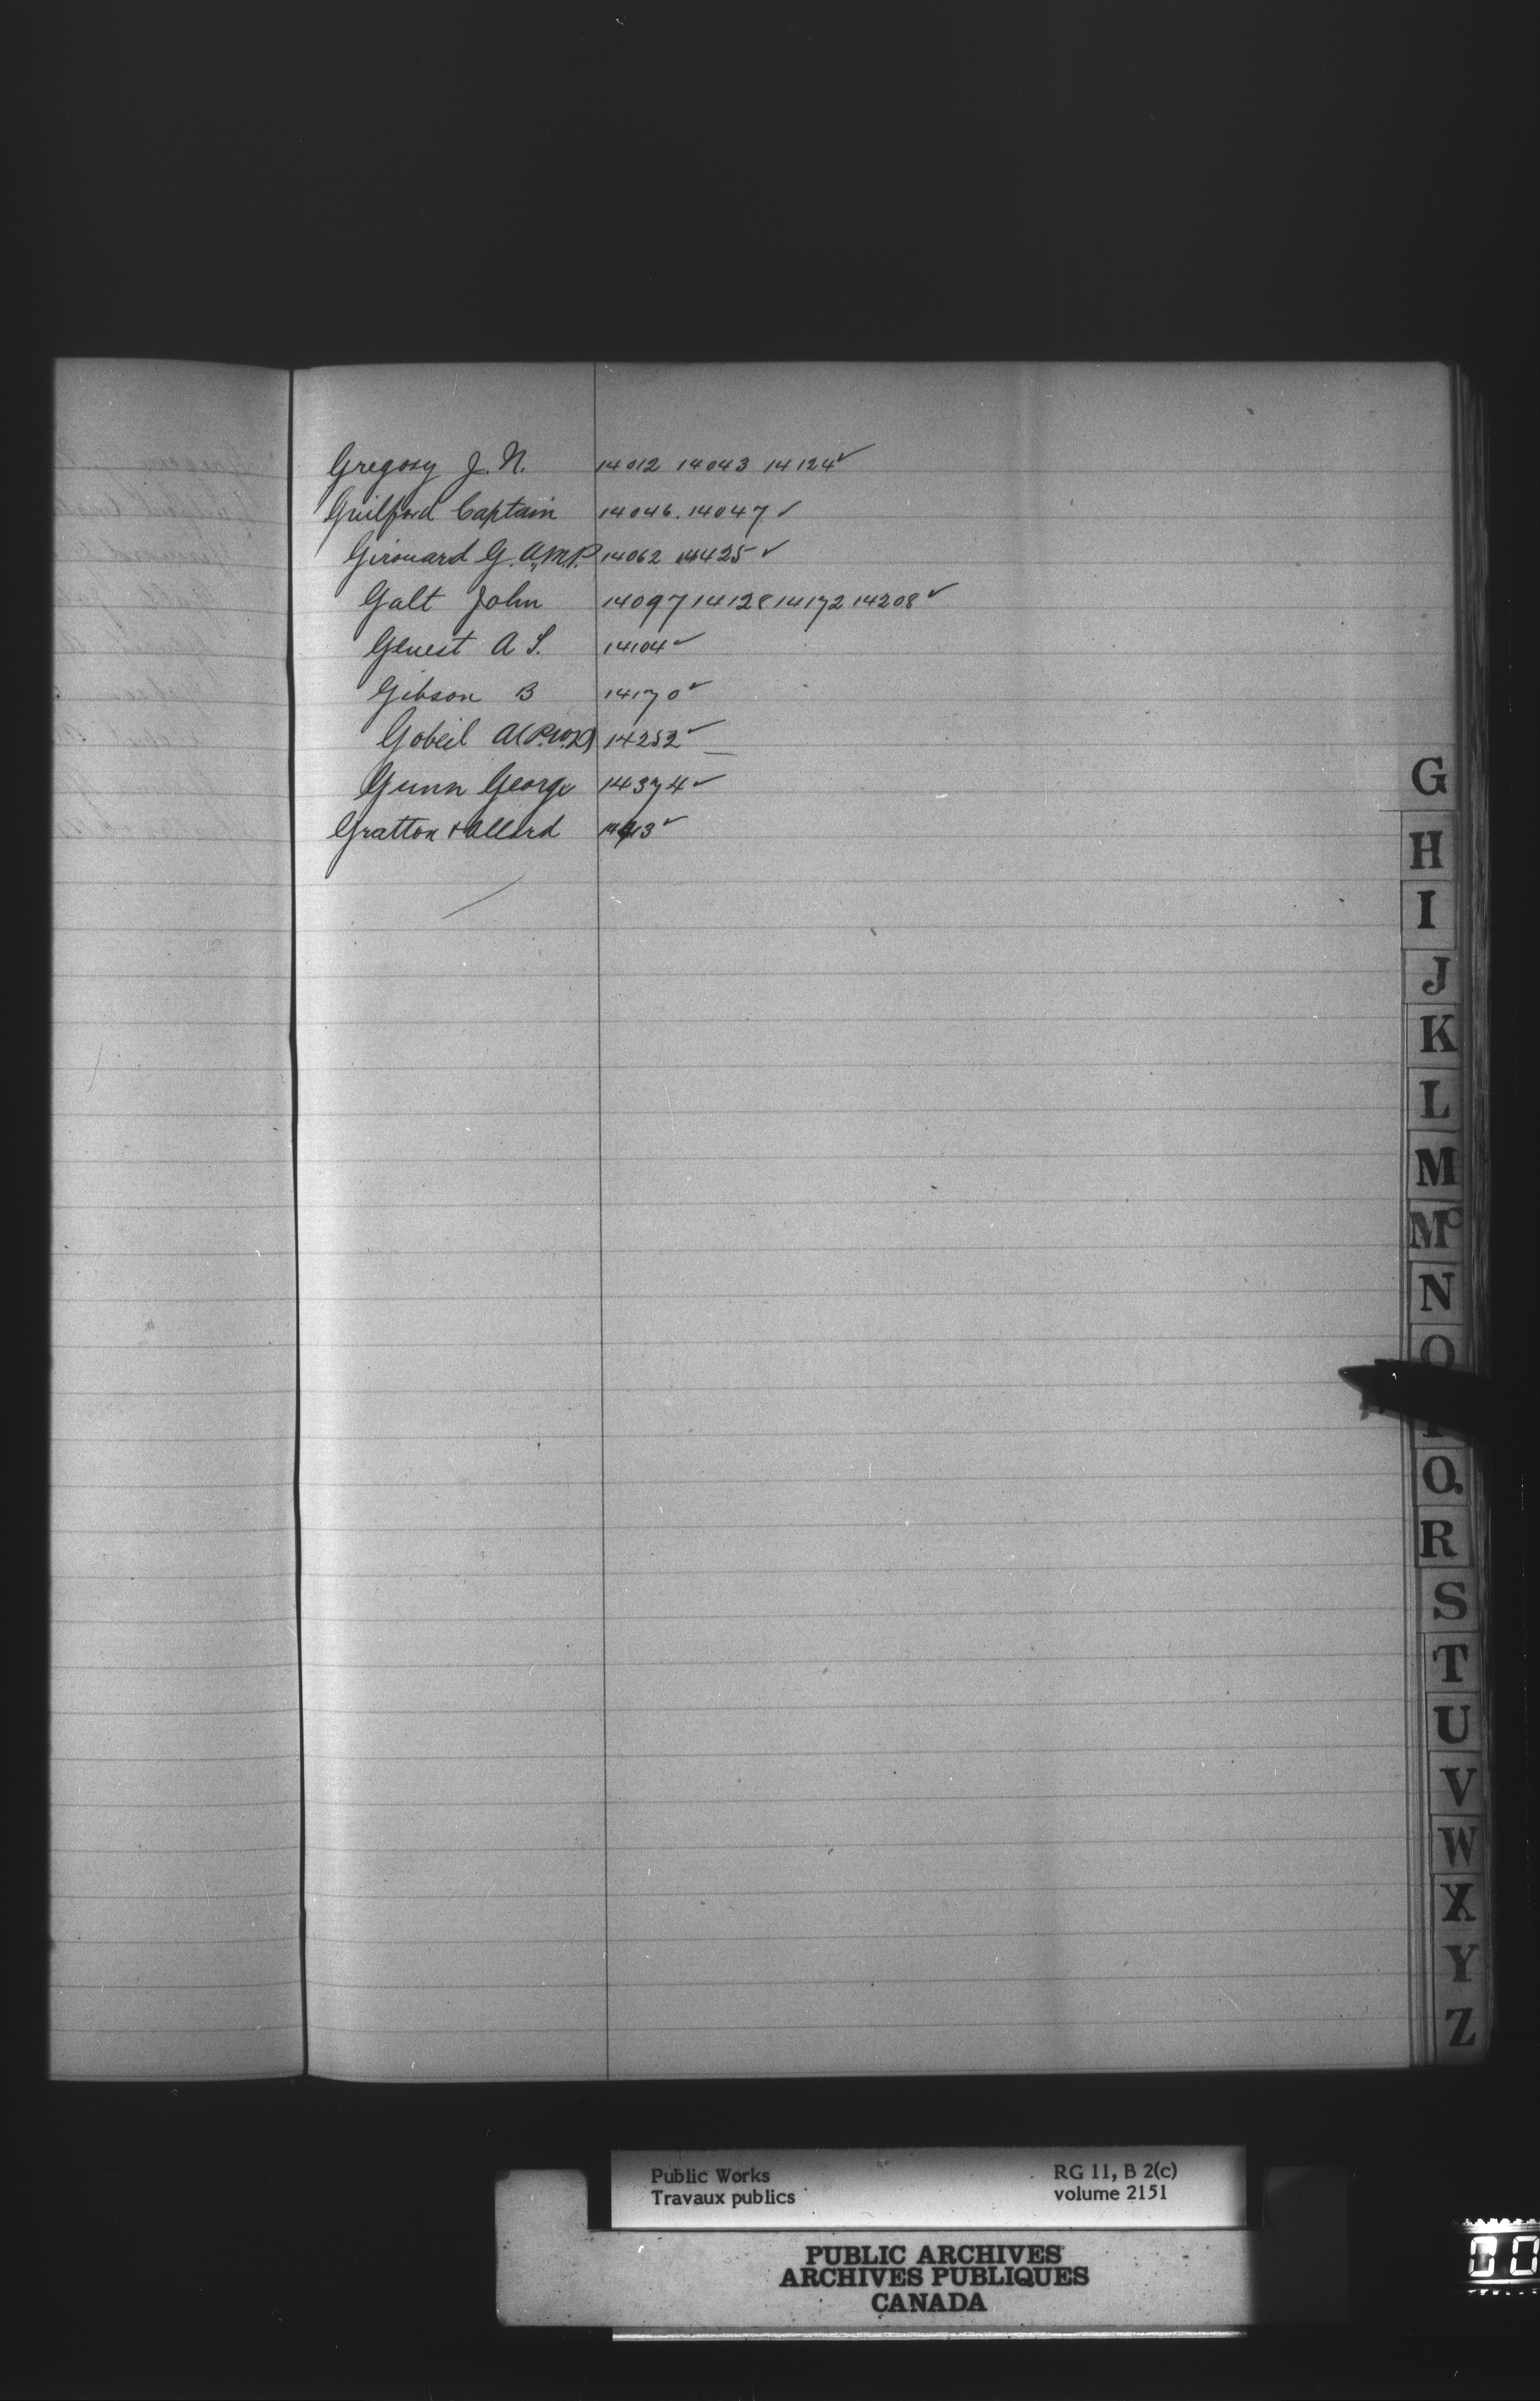 Gregory J. N. 14012 14043 14124 ✓
Guilford Captain 14046. 14047 ✓
Girouard G. A., M.P. 14062 14425 ✓
Galt John 14097 14128 14172 14208 ✓
Genest A S. 14104 ✓
Gibson B 14170 ✓
Gobeil A (P.W.D) 14252 ✓
Gunn George 14374 ✓
Gratton & Allard ✓
G
H
I
J
K
L
M
Mc
N
O
Q
R
S
T
U
V
W
X
Y
Z
Public Works RG 11, B 2(c)
Travaux publics volume 2151
PUBLIC ARCHIVES
ARCHIVES PUBLIQUES
CANADA